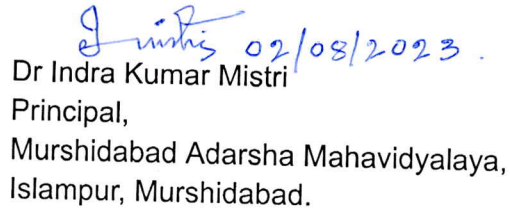 02/08/2023.
Dr Indra Kumar Mistri
Principal,
Murshidabad Adarsha Mahavidyalaya,
Islampur, Murshidabad.